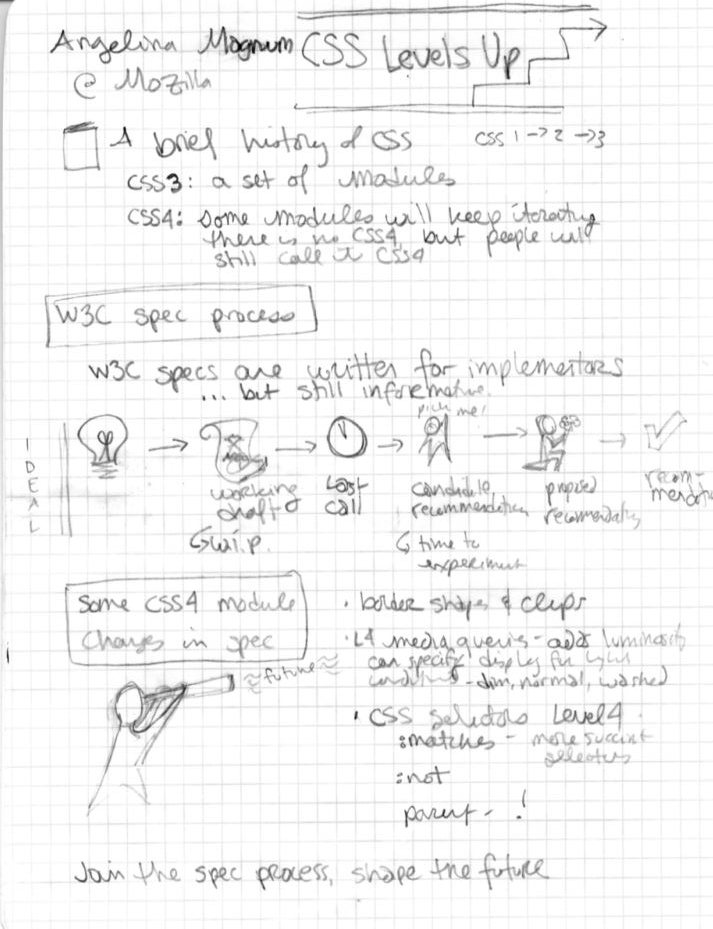 Angelina Magnum
@ Mozilla
CSS Levels Up
A brief history of CSS
CSS 1 -> 2 -> 3
CSS3: a set of modules
CSS4: some modules will keep iterating
there is no CSS4, but people will
still call it CSS4
W3C spec process
W3C specs are written for implementors
... but still informative.
IDEAL
working
draft
w.i.p.
Last
call
pick me!
candidate
recommendation
time to
experiment
proposed
recommendation
recom-
mendation
Some CSS4 module
changes in spec
future
· border shapes & clips
· L4 media queries - adds luminosity
can specify display for light
conditions - dim, normal, washed
· CSS selectors Level 4
:matches - more succint
selectors
:not
parent - !
Join the spec process, shape the future